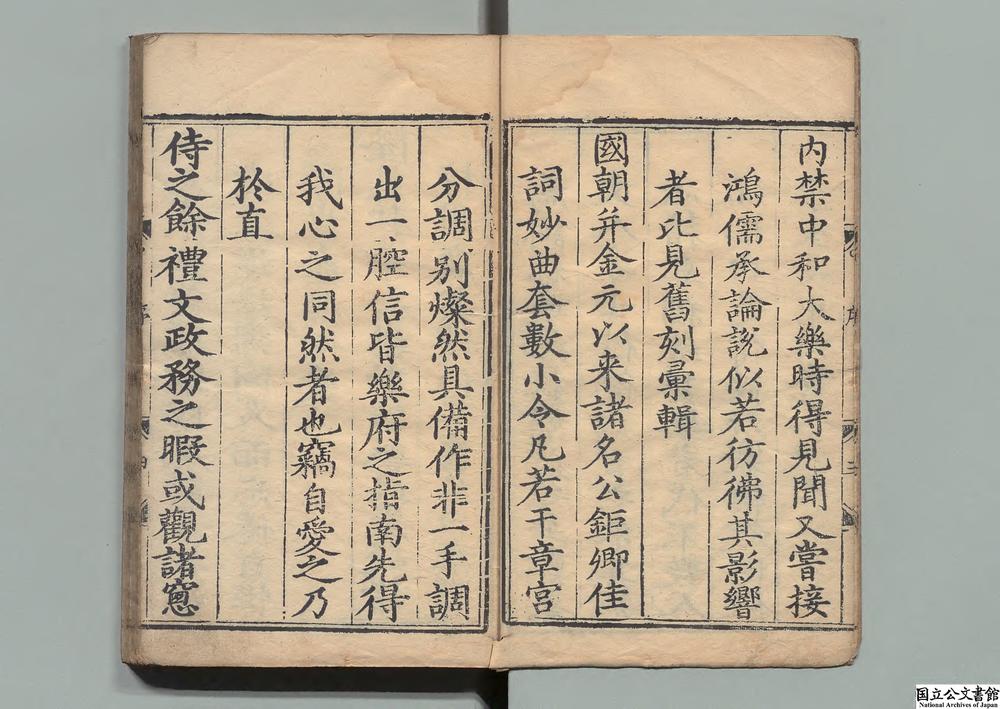 内禁中和大樂時得見聞又嘗接
鴻儒承論說似若彷彿其影響
者比見舊刻彚輯
國朝并金元以來諸名公鉅卿佳
詞妙曲套數小令凡若干章宮
分調別燦然具備作非一手調
出一腔信皆樂府之指南先得
我心之同然者也竊自愛之乃
於直
侍之餘禮文政務之暇或觀諸窻
国立公文書館
National Archives of Japan